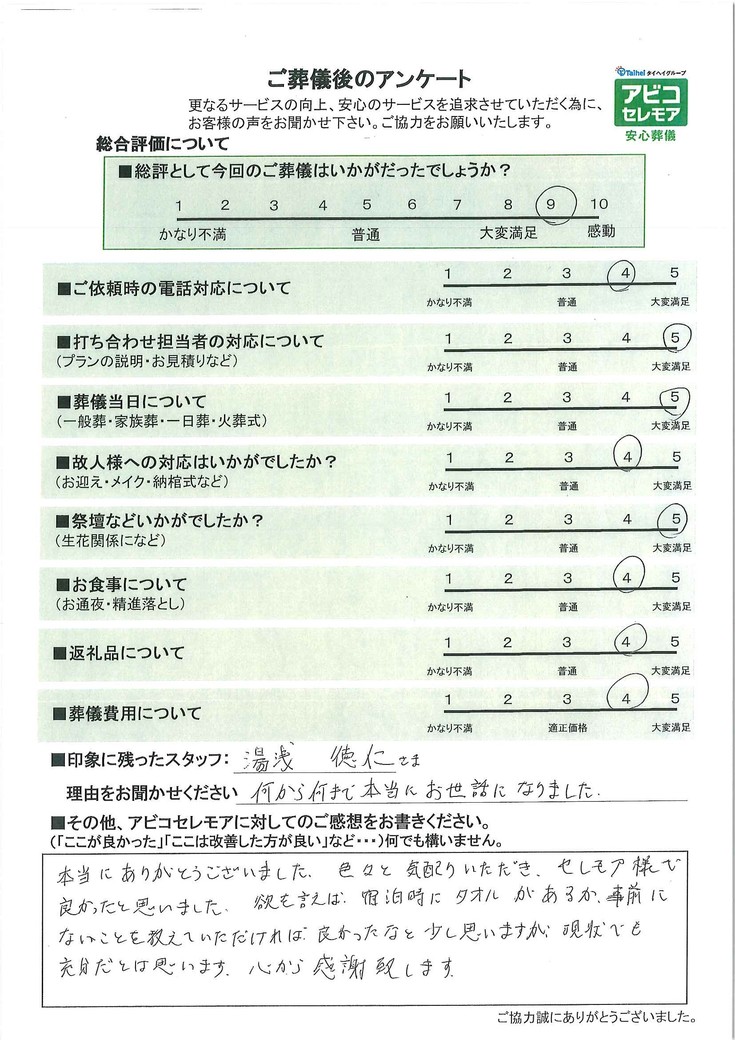 ご葬儀後のアンケート
Taihei タイヘイグループ
アビコ
セレモア
安心葬儀
更なるサービスの向上、安心のサービスを追求させていただく為に、
お客様の声をお聞かせ下さい。ご協力をお願いいたします。
総合評価について
■総評として今回のご葬儀はいかがだったでしょうか？
1 2 3 4 5 6 7 8 9 10
かなり不満 普通 大変満足 感動
■ご依頼時の電話対応について
1 2 3 4 5
かなり不満 普通 大変満足
■打ち合わせ担当者の対応について
(プランの説明・お見積りなど)
1 2 3 4 5
かなり不満 普通 大変満足
■葬儀当日について
(一般葬・家族葬・一日葬・火葬式)
1 2 3 4 5
かなり不満 普通 大変満足
■故人様への対応はいかがでしたか？
(お迎え・メイク・納棺式など)
1 2 3 4 5
かなり不満 普通 大変満足
■祭壇などいかがでしたか？
(生花関係になど)
1 2 3 4 5
かなり不満 普通 大変満足
■お食事について
(お通夜・精進落とし)
1 2 3 4 5
かなり不満 普通 大変満足
■返礼品について
1 2 3 4 5
かなり不満 普通 大変満足
■葬儀費用について
1 2 3 4 5
かなり不満 適正価格 大変満足
■印象に残ったスタッフ: 湯浅 徳仁さま
理由をお聞かせください 何から何まで本当にお世話になりました.
■その他、アビコセレモアに対してのご感想をお書きください。
(「ここが良かった」「ここは改善した方が良い」など・・・)何でも構いません。
本当にありがとうございました. 色々と気配りいただき、セレモア様で
良かったと思いました. 欲を言えば、宿泊時にタオルがあるか、事前に
ないことを教えていただければ良かったなと少し思いますが、現状でも
充分だとは思います. 心から感謝致します.
ご協力誠にありがとうございました。